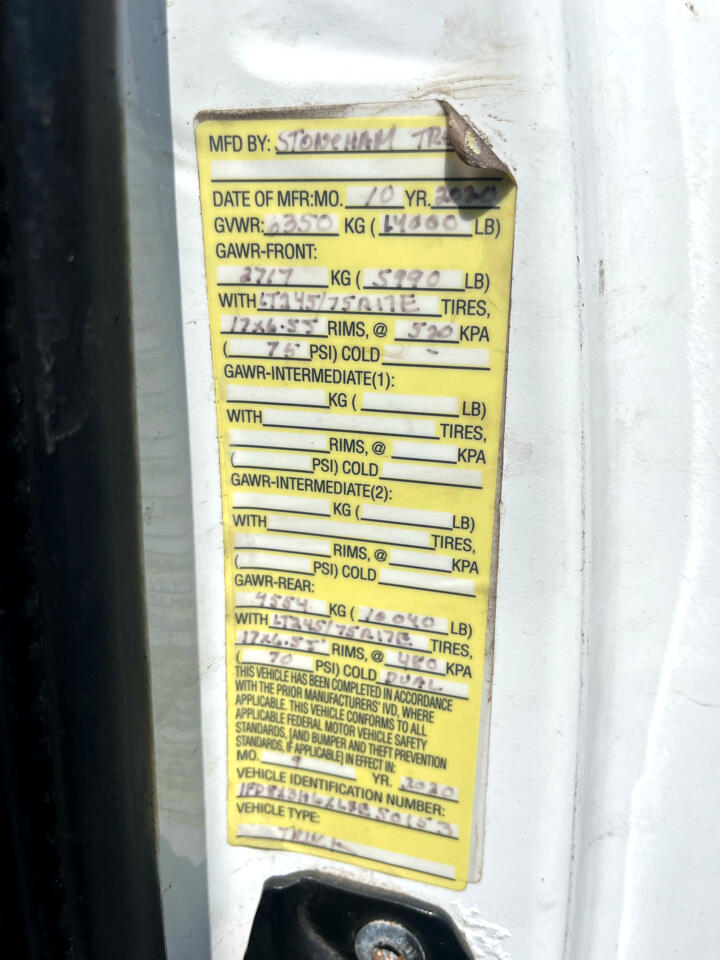 MFD BY: STONEHAM
DATE OF MFR:MO. 10 YR. 2020
GVWR: 6350 KG ( 14000 LB)
GAWR-FRONT:
2717 KG ( 5990 LB)
WITH LT245/75R17E TIRES,
17x6.5J RIMS, @ 520 KPA
( 75 PSI) COLD -
GAWR-INTERMEDIATE(1):
KG ( LB)
WITH TIRES,
RIMS, @ KPA
( PSI) COLD
GAWR-INTERMEDIATE(2):
KG ( LB)
WITH TIRES,
RIMS, @ KPA
( PSI) COLD
GAWR-REAR:
4554 KG ( 10040 LB)
WITH LT245/75R17E TIRES,
17x6.5J RIMS, @ 480 KPA
( 70 PSI) COLD DUAL
THIS VEHICLE HAS BEEN COMPLETED IN ACCORDANCE
WITH THE PRIOR MANUFACTURERS' IVD, WHERE
APPLICABLE. THIS VEHICLE CONFORMS TO ALL
APPLICABLE FEDERAL MOTOR VEHICLE SAFETY
STANDARDS, [AND BUMPER AND THEFT PREVENTION
STANDARDS, IF APPLICABLE] IN EFFECT IN:
MO. 9 YR. 2020
VEHICLE IDENTIFICATION NUMBER:
VEHICLE TYPE:
TRUCK